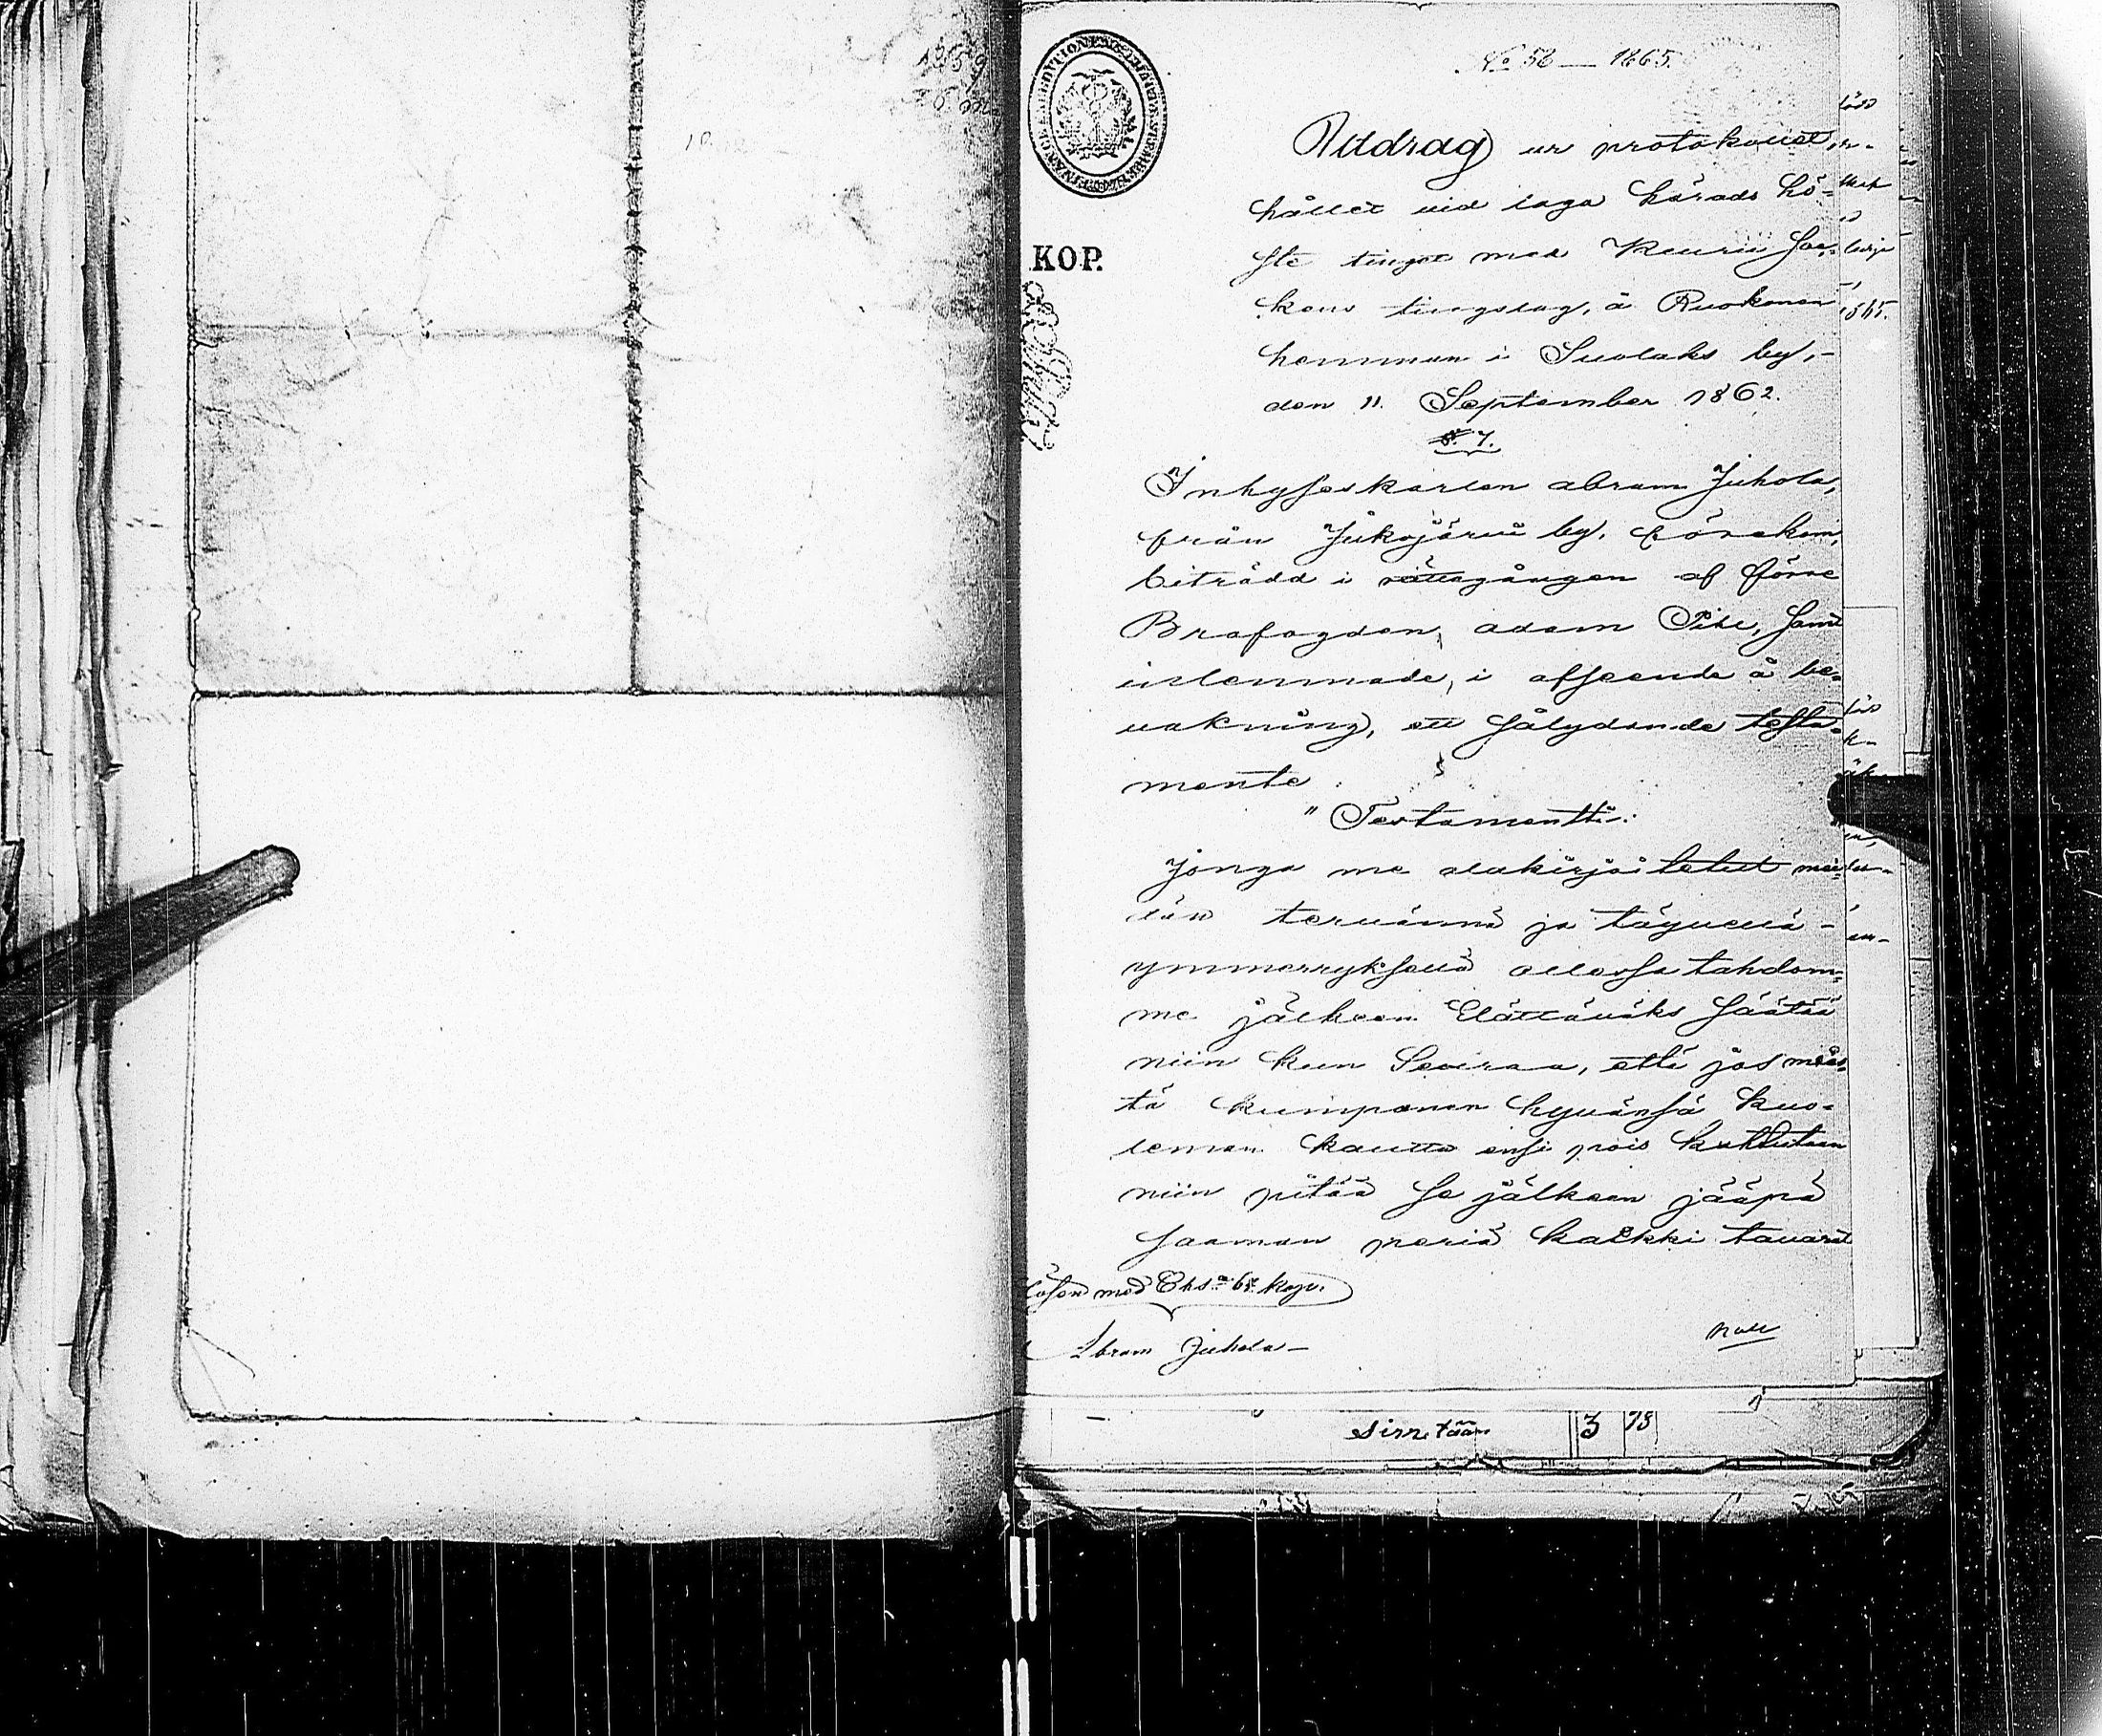 No 58 — 1865.
Utdrag ur protokollet,
hållet vid laga härads hö-
ste tinget med Keuru soc-
kens tingslag, å Ruokonen
hemman i Suolaks by, -
den 11. September 1862.
§. 7.
KOP.
Inhyseskarlen Abram Juhola,
från Jukojärvi by, förekom,
biträdd i rättegången af förre
Brofogden, Adam Pihl, samt
inlemnade, i afseende å be-
vakning, ett sålydande testa-
mente:
"Testamentti:
Jonga me alakirjoitetut mei-
dän tervännä ja täyvellä -
ymmerryksellä ollessa tahdom-
me jälkeen Elättäväks säätää
niin kun Seuraa, että jos meis-
tä kumpanen hyvänsä kuo-
leman kautta ensi pois kuttutaan
niin pitää se jälkeen jääpä
saaman periä kaikki tavarat
Lösen med Ehsa 64 kop.
Abram Juhola -
Sirretään 3 78
1865.